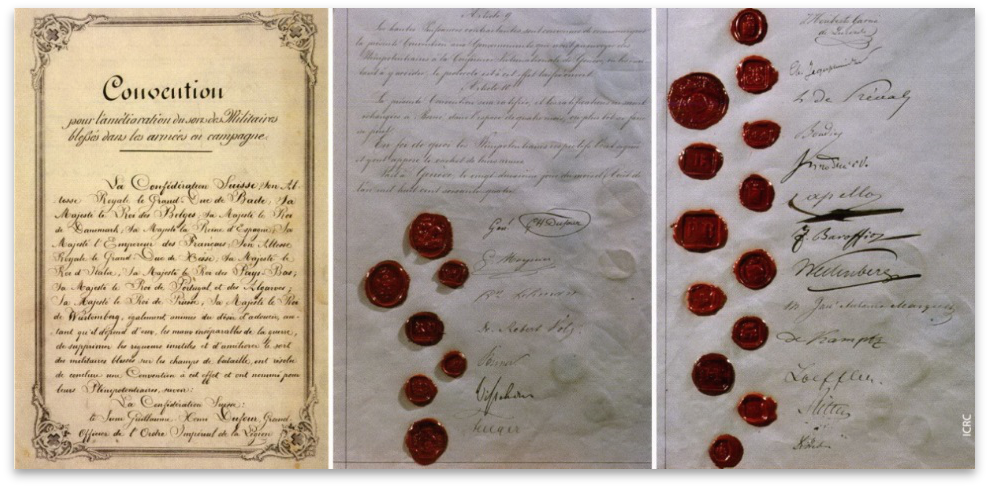 Convention
pour l'amélioration du sort des Militaires
blessés dans les armées en campagne.
La Confédération Suisse, Son Al-
tesse Royale le Grand-Duc de Bade, Sa
Majesté le Roi des Belges, Sa Majesté le Roi
de Danemark, Sa Majesté la Reine d'Espagne, Sa
Majesté l'Empereur des Français, Son Altesse
Royale le Grand-Duc de Hesse, Sa Majesté le
Roi d'Italie, Sa Majesté le Roi des Pays-Bas,
Sa Majesté le Roi de Portugal et des Algarves,
Sa Majesté le Roi de Prusse, Sa Majesté le Roi
de Würtemberg, également animés du désir d'adoucir, au-
tant qu'il dépend d'eux, les maux inséparables de la guerre,
de supprimer les rigueurs inutiles et d'améliorer le sort
des militaires blessés sur les champs de bataille, ont résolu
de conclure une Convention à cet effet et ont nommé pour
leurs Plénipotentiaires, savoir:
La Confédération Suisse:
le Sieur Guillaume-Henri Dufour, Grand-
Officier de l'Ordre Impérial de la Légion
Article 9
Les hautes Puissances contractantes sont convenues de communiquer
la présente Convention aux Gouvernements qui n'ont pu envoyer des
Plénipotentiaires à la Conférence Internationale de Genève, en les invi-
tant à y accéder; le protocole est à cet effet laissé ouvert.
Article 10
La présente Convention sera ratifiée, et les ratifications en seront
échangées à Berne, dans l'espace de quatre mois, ou plus tôt si faire
se peut.
En foi de quoi les Plénipotentiaires respectifs l'ont signée
et y ont apposé le cachet de leurs armes.
Fait à Genève, le vingt-deuxième jour du mois d'Août de
l'an mil huit cent soixante-quatre.
Gal GH Dufour
G. Moynier
Dr Lehmann
Dr Robert Volz
Steiner
Visschers
Fenger
de Préval
Boudier
Capello
F. Baroffio
Westenberg
José Antonio Marques
de Kamptz
Loeffler
Ritter
ICRC